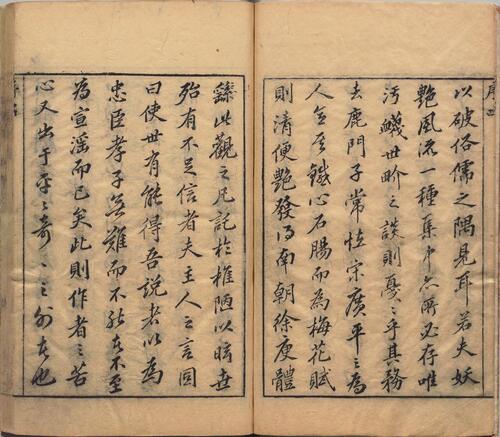 序四
以破俗儒之隅見耳若夫妖
艷風流一種集中亦所必存唯
汚蠛世畍之談則戛々乎其務
去鹿門子常怪宋廣平之為
人意其鐵心石腸而為梅花賦
則清便艷發得南朝徐庾體
繇此觀之凡託於椎陋以眩世
殆有不足信者夫主人之言固
曰使世有能得吾說者以為
忠臣孝子無難而不能者不至
為宣淫而已矣此則作者之苦
心又出于平々奇々之外者也